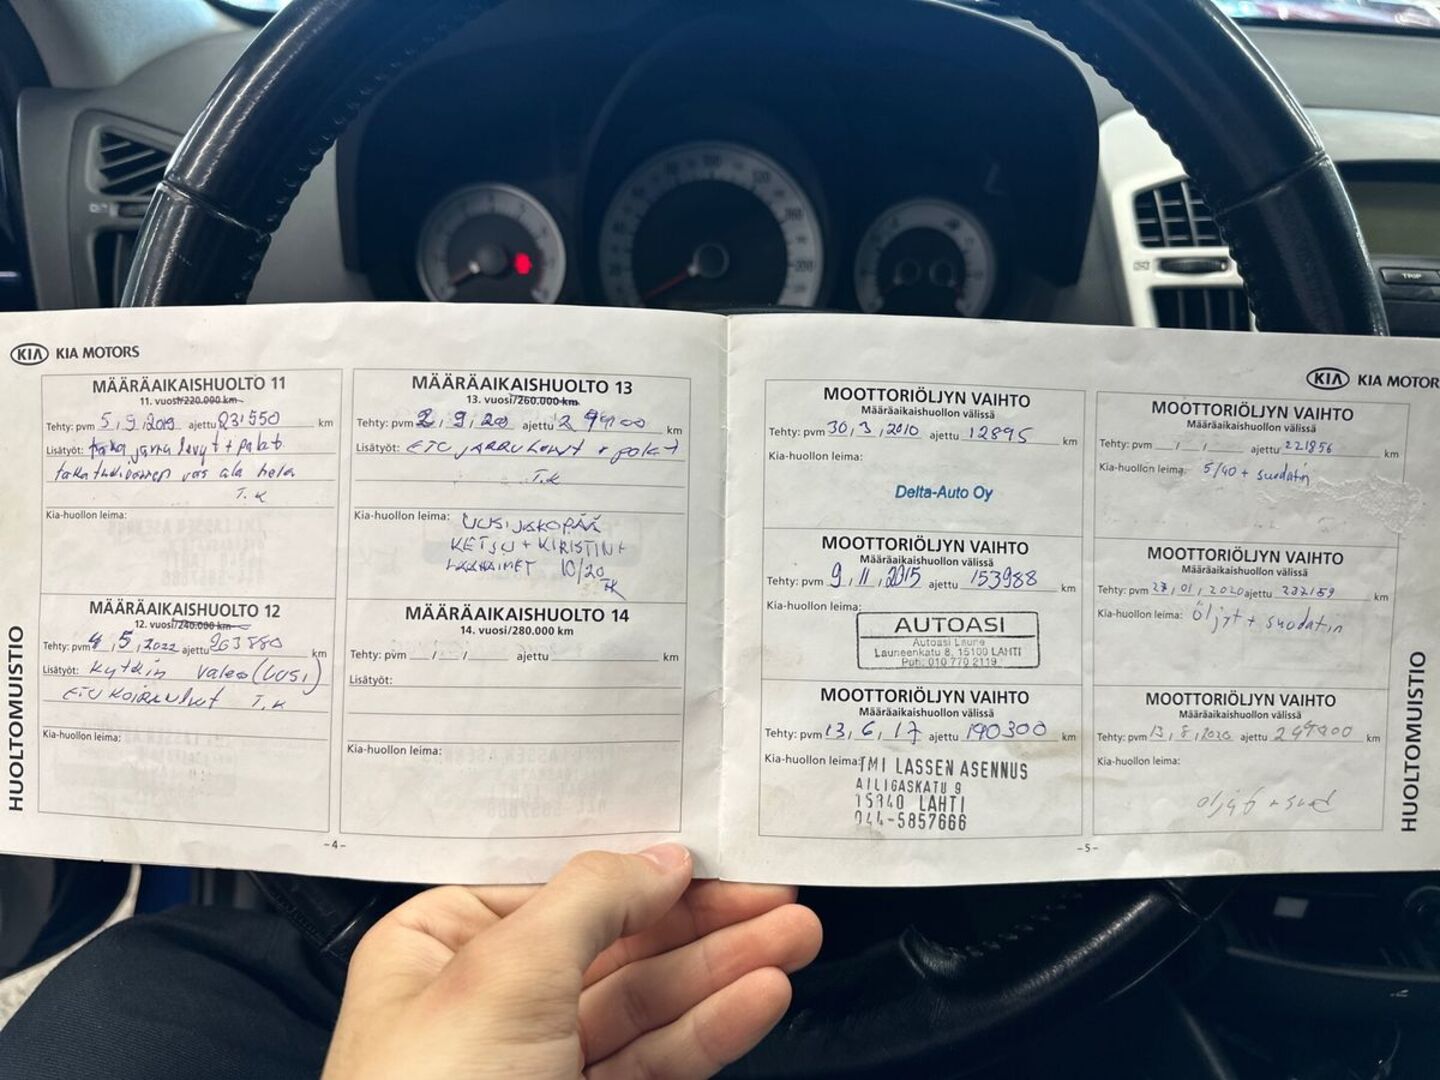 KIA KIA MOTORS
MÄÄRÄAIKAISHUOLTO 11
11. vuosi/220.000 km
Tehty: pvm 5.9.2019 ajettu 231550 km
Lisätyöt: taka jarru levyt + palat
taka ala hela
T.K
Kia-huollon leima:
MÄÄRÄAIKAISHUOLTO 12
12. vuosi/240.000 km
Tehty: pvm 4.5.2022 ajettu 263880 km
Lisätyöt: Kytkin Valeo (uusi)
ETU T.K
Kia-huollon leima:
MÄÄRÄAIKAISHUOLTO 13
13. vuosi/260.000 km
Tehty: pvm 2.9.20 ajettu km
Lisätyöt: ETU JARRULEVYT + palat
T.K
Kia-huollon leima: UUSI JAKOPÄÄ
KETJU + KIRISTIN +
LAAHAIMET 10/20
TK
MÄÄRÄAIKAISHUOLTO 14
14. vuosi/280.000 km
Tehty: pvm / / ajettu km
Lisätyöt:
Kia-huollon leima:
HUOLTOMUISTIO
-4-
KIA KIA MOTOR
MOOTTORIÖLJYN VAIHTO
Määräaikaishuollon välissä
Tehty: pvm 30.3.2010 ajettu 12895 km
Kia-huollon leima:
Delta-Auto Oy
MOOTTORIÖLJYN VAIHTO
Määräaikaishuollon välissä
Tehty: pvm 9.11.2015 ajettu 153988 km
Kia-huollon leima:
AUTOASI
Autoasi Laune
Launeenkatu 8, 15100 LAHTI
Puh. 010 770 2119
MOOTTORIÖLJYN VAIHTO
Määräaikaishuollon välissä
Tehty: pvm 13.6.17 ajettu 190300 km
Kia-huollon leima: TMI LASSEN ASENNUS
AILIGASKATU 9
15340 LAHTI
044-5857666
MOOTTORIÖLJYN VAIHTO
Määräaikaishuollon välissä
Tehty: pvm / / ajettu 221856 km
Kia-huollon leima: 5/40 + suodatin
MOOTTORIÖLJYN VAIHTO
Määräaikaishuollon välissä
Tehty: pvm 27.01.2020 ajettu 237159 km
Kia-huollon leima: Öljyt + suodatin
MOOTTORIÖLJYN VAIHTO
Määräaikaishuollon välissä
Tehty: pvm 13.8.2020 ajettu km
Kia-huollon leima:
öljyt + suod
HUOLTOMUISTIO
-5-
TRIP